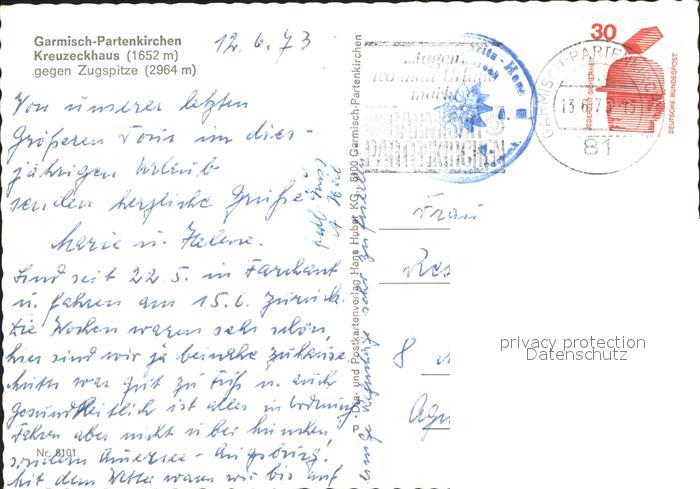 Garmisch-Partenkirchen
Kreuzeckhaus (1652 m)
gegen Zugspitze (2964 m)
12.6.73
Von unserer letzten
größeren Tour im dies-
jährigen Urlaub
senden herzliche Grüße
Marie u. Helene.
Sind seit 22.5. in Farchant
u. fahren am 15.6. zurück.
Die Wochen waren sehr schön,
hier sind wir ja beinahe zuhause.
Mutti war gut zu Fuß u. auch
gesundheitlich ist alles in Ordnung
Fahren aber nicht über München,
sondern Ammersee - Augsburg.
Mit dem Wetter waren wir bis auf
einige Regentage sehr zufrieden
Nr. 8101
Dia- und Postkartenverlag Hans Huber KG, 8100 Garmisch-Partenkirchen
...tagen,
wo man Urlaub
macht
GARMISCH
PARTENKIRCHEN
GARMISCH-PARTENKIRCHEN
13.6.73
81
30
JEDERZEIT SICHERHEIT
DEUTSCHE BUNDESPOST
Frau
8
privacy protection
Datenschutz